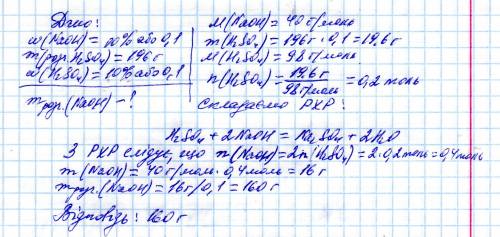 Дано:
ω(NaOH) = 10% або 0,1
m р-ну(H₂SO₄) = 196 г
ω(H₂SO₄) = 10% або 0,1
m р-ну.(NaOH) - ?
M(NaOH) = 40 г/моль
m(H₂SO₄) = 196 г · 0,1 = 19,6 г
M(H₂SO₄) = 98 г/моль
n(H₂SO₄) = 19,6 г / 98 г/моль = 0,2 моль
Складаємо РХР:
H₂SO₄ + 2NaOH = Na₂SO₄ + 2H₂O
З РХР слідує, що n(NaOH) = 2n(H₂SO₄) = 2·0,2 моль = 0,4 моль
m(NaOH) = 40 г/моль · 0,4 моль = 16 г
m р-ну.(NaOH) = 16 г / 0,1 = 160 г
Відповідь: 160 г